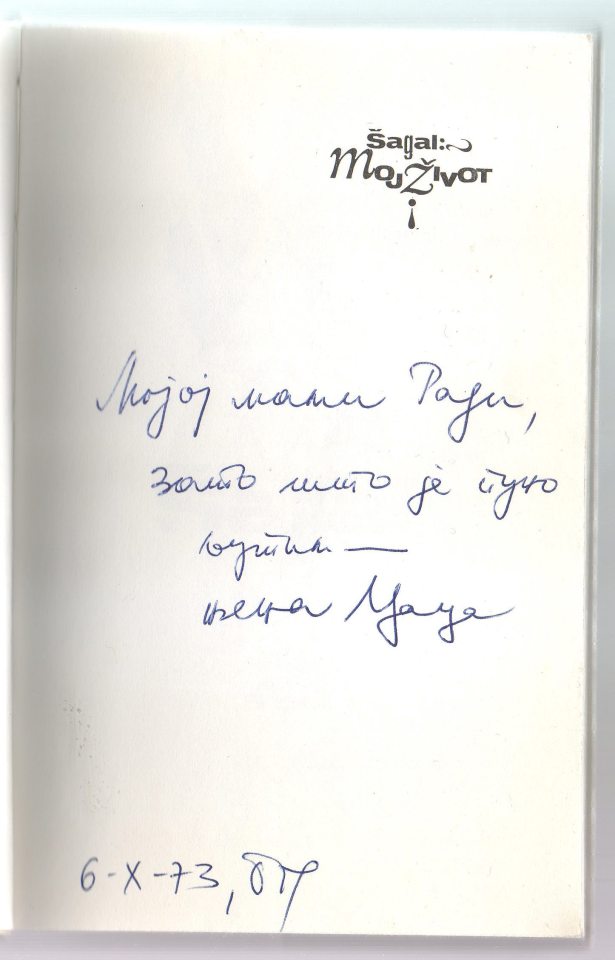 Šagal:
Moj Život
Мојој мами Ради,
зато што је пуно
љутим —
њена Цаца
6-X-73,